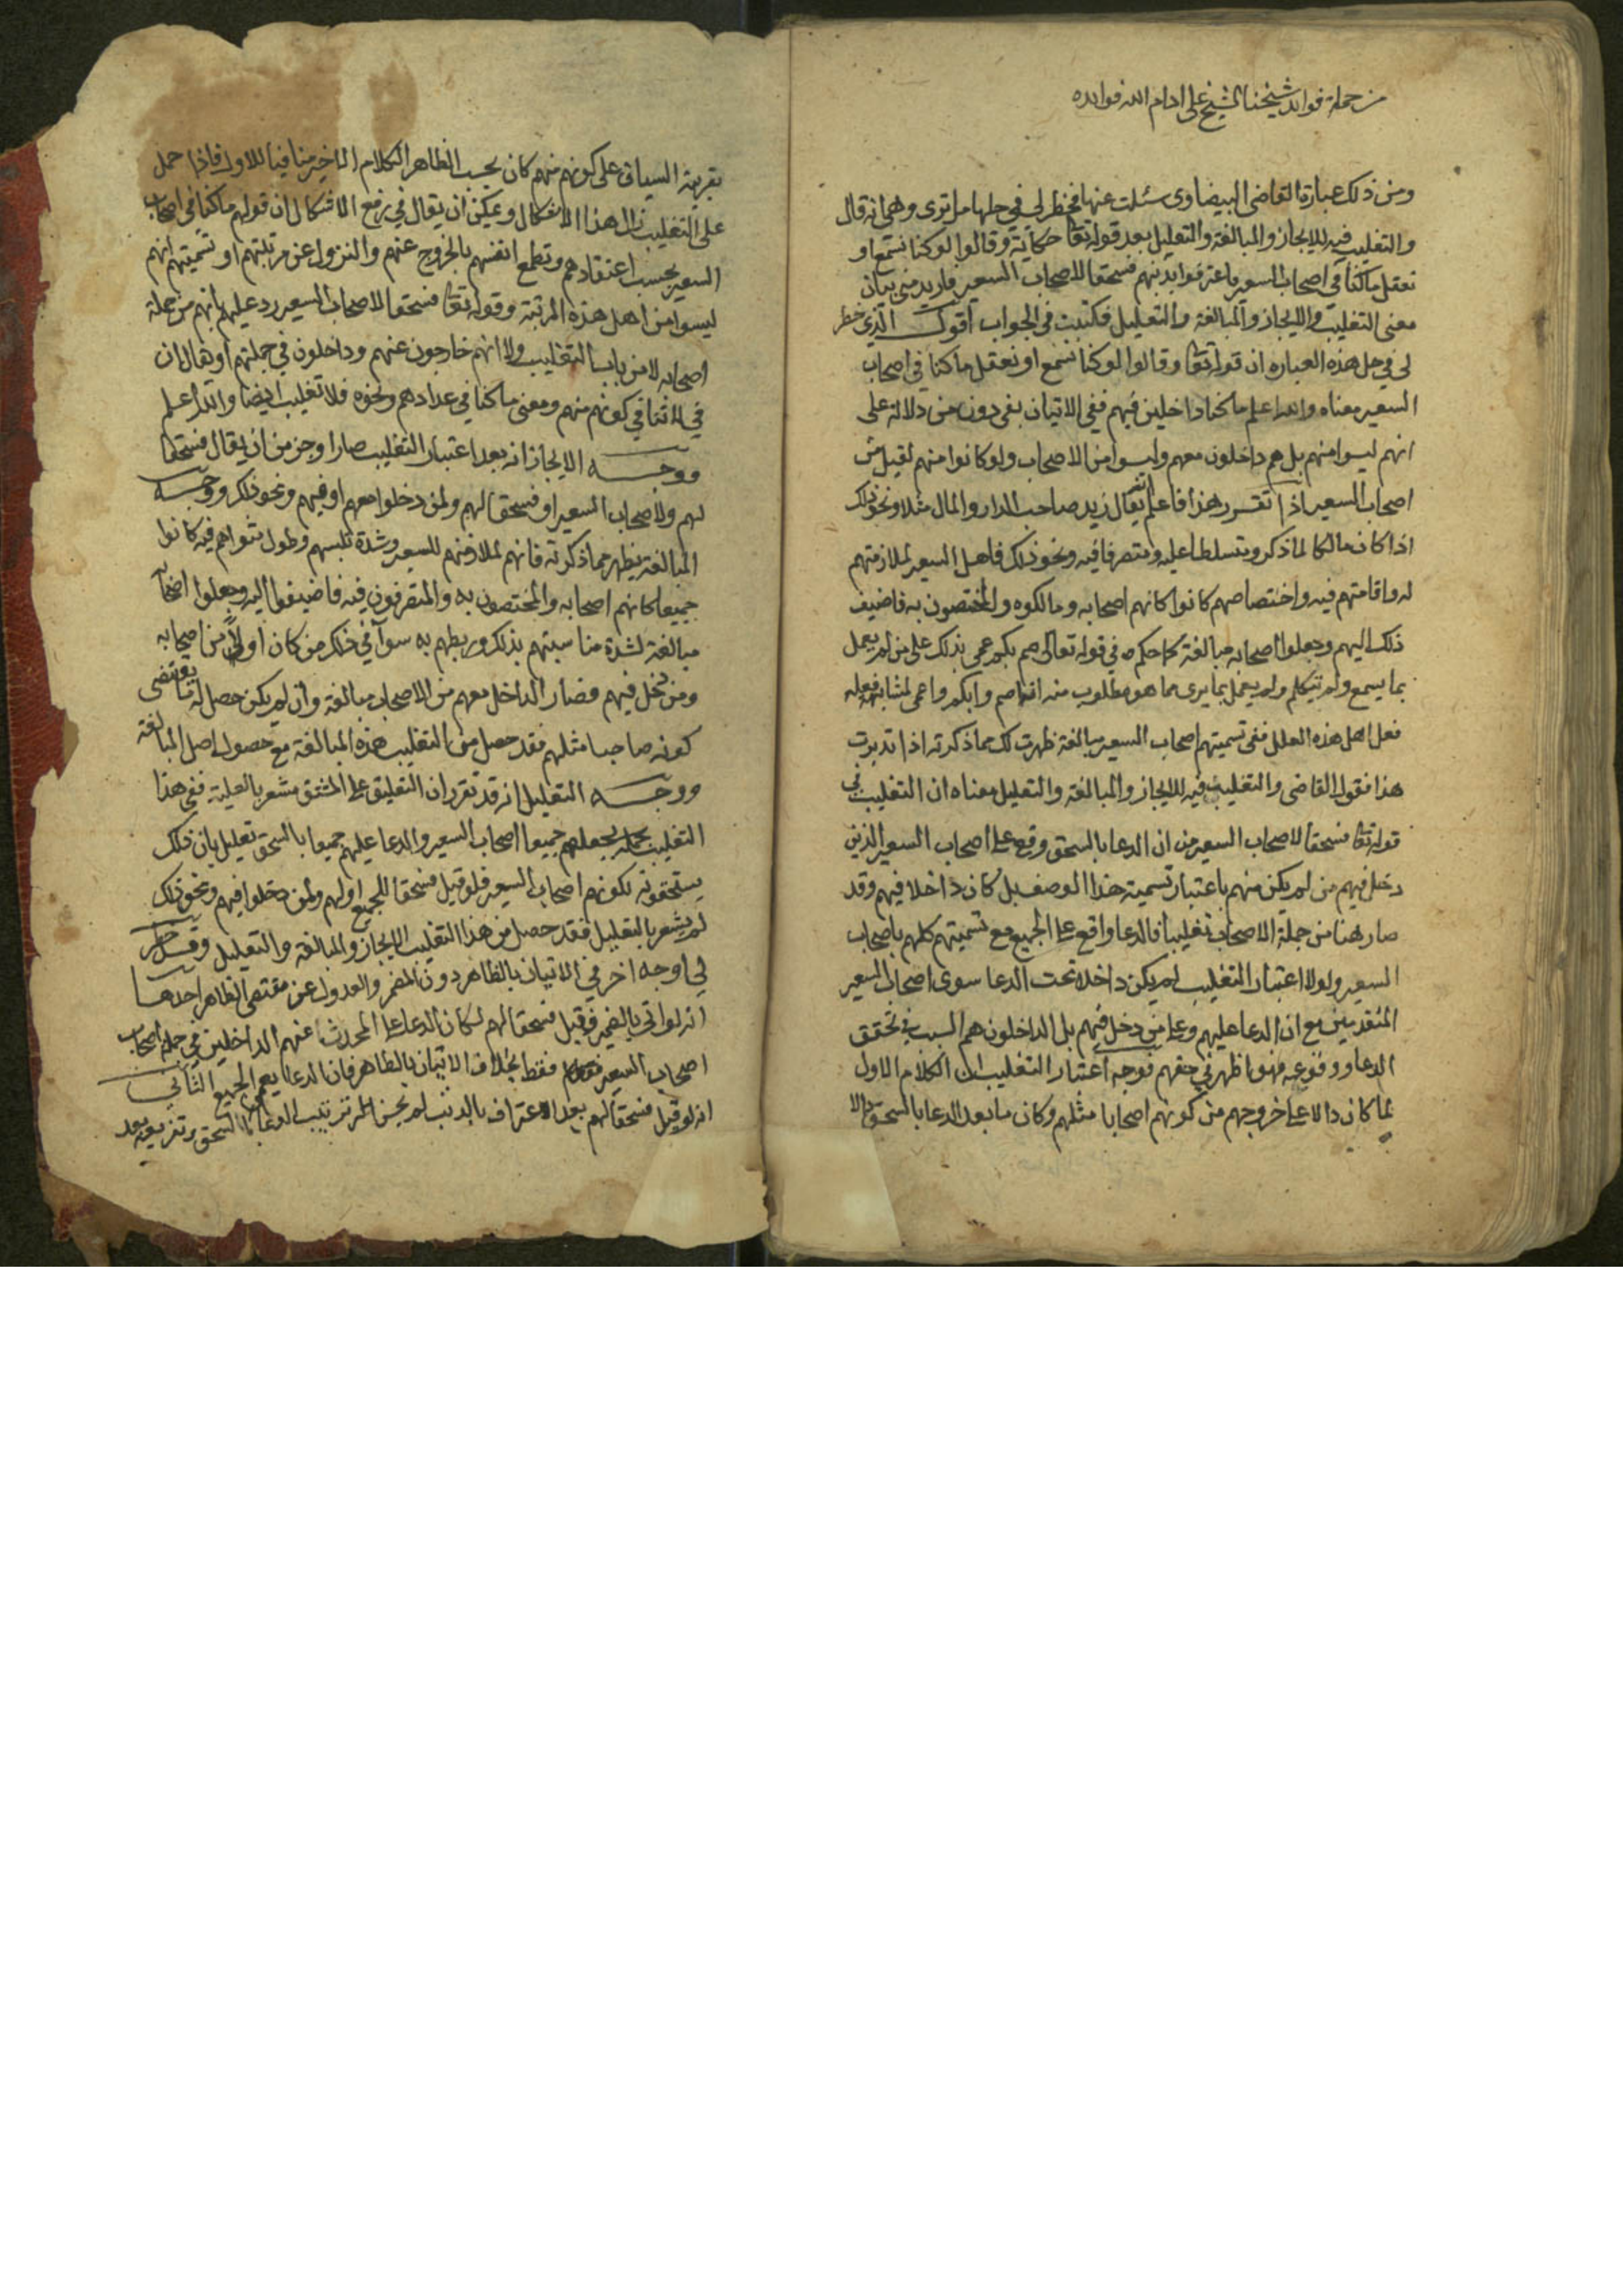 من جملة فوايد شيخنا الشيخ على ادام الله فوايده
ومن ذلك عبارة القاضى البيضاوى سئلت عنها فخطر لى فى حلها ما ترى وهى انه قال
والتغليب فيه للايجاز والمبالغة والتعليل بعد قوله تعا حكاية وقالوا لو كنا نسمع او
نعقل ما كنا فى اصحاب السعير فاعترفوا بذنبهم فسحقا لاصحاب السعير فاريد منى بيان
معنى التغليب والايجاز والمبالغة والتعليل فكتبت فى الجواب اقول الذى خطر
لى فى حل هذه العباره ان قوله تعا وقالوا لو كنا نسمع او نعقل ما كنا فى اصحاب
السعير معناه والله اعلم ما كنا داخلين فيهم ففى الاتيان بفى دون من دلالة على
انهم ليسوا منهم بل هم داخلون معهم وليسوا من الاصحاب ولو كانوا منهم لقيل من
اصحاب السعير اذا تقرر هذا فاعلم انه يقال زيد صاحب الدار والمال مثلا ونحو ذلك
اذا كان مالكا لما ذكر ومتسلطا عليه ومتصرفا فيه ونحو ذلك فاهل السعير لملازمتهم
له واقامتهم فيه واختصاصهم كانوا كانهم اصحابه ومالكوه والمختصون به فاضيف
ذلك اليهم وجعلوا اصحابه مبالغة كما حكم فى قوله تعالى صم بكم عمى بذلك على من لم يعمل
بما يسمع ولم يتكلم ولم يعمل بما يرى مما هو مطلوب منه انه اصم وابكم واعمى لمشابهة فعله
فعل اهل هذه العلل ففى تسميتهم اصحاب السعير مبالغة ظهرت لك مما ذكرته اذا تدبرت
هذا فقول القاضى والتغليب فيه للايجاز والمبالغة والتعليل معناه ان التغليب فى
قوله تعا فسحقا لاصحاب السعير من ان الدعا بالسحق وقع على اصحاب السعير الذين
دخل فيهم من لم يكن منهم باعتبار تسميته هذا الوصف بل كان داخلا فيهم وقد
صار هنا من جملة الاصحاب تغليبا فالدعا واقع على الجميع مع تسميتهم كلهم باصحاب
السعير ولولا اعتبار التغليب لم يكن داخلا تحت الدعا سوى اصحاب السعير
المتقدمين مع ان الدعا عليهم وعلى من دخل فيهم بل الداخلون هم السبب فى تحقق
الدعا ووقوعه فهو اظهر فى حقهم فوجه اعتبار التغليب ان الكلام الاول
لما كان دالا على خروجهم من كونهم اصحابا مثلهم وكان ما بعد الدعا بالسحق دالا
بقرينة السياق على كونهم منهم كان بحسب الظاهر الكلام الاخير منافيا للاول فاذا حمل
على التغليب زال هذا الاشكال ويمكن ان يقال فى رفع الاشكال ان قولهم ما كنا فى اصحاب
السعير بحسب اعتقادهم وتطمع انفسهم بالخروج عنهم والنزول عن مرتبتهم او تسميتهم انهم
ليسوا من اهل هذه المرتبة وقوله تعا فسحقا لاصحاب السعير رد عليهم بانهم من جملة
اصحابه لا من باب التغليب ولا انهم خارجون عنهم وداخلون فى جملتهم او يقال ان
فى كونهم منهم ومعنى ما كنا فى عدادهم ونحوه فلا تغليب ايضا والله اعلم
ووجه الايجاز انه بعد اعتبار التغليب صار اوجز من ان يقال فسحقا
لهم ولاصحاب السعير او فسحقا لهم ولمن دخلوا معهم او فيهم ونحو ذلك ووجه
المبالغة يظهر مما ذكرته فانهم لملازمتهم للسعير وشدة تلبسهم وطول ثوائهم فيه كانوا
جميعا كانهم اصحابه والمختصون به والمتصرفون فيه فاضيفوا اليه وجعلوا اصحابا
مبالغة لشدة مناسبتهم بذلك وربطهم به سوآ فى ذلك من كان اولا من اصحابه
ومن دخل فيهم فصار الداخل معهم من الاصحاب مبالغة وان لم يكن حصل له ما يقتضى
كونه صاحبا مثلهم فقد حصل من التغليب هذه المبالغة مع حصول اصل المبالغة
ووجه التعليل انه قد تقرر ان التعليق على المشتق مشعر بالعلية ففى هذا
التغليب يجعلهم جميعا اصحاب السعير والدعا عليهم جميعا بالسحق تعليل بان ذلك
يستحقونه لكونهم اصحاب السعير فلو قيل فسحقا للجميع او لهم ولمن دخلوا فيهم ونحو ذلك
لم يشعر بالتعليل فقد حصل من هذا التغليب الايجاز والمبالغة والتعليل وقد خطر
لى اوجه اخر فى الاتيان بالظاهر دون المضمر والعدول عن مقتضى الظاهر احدها
انه لو اتى بالضمير فقيل فسحقا لهم لكان الدعا على المحدث عنهم الداخلين فى جملة اصحاب
اصحاب السعير فقط بخلاف الاتيان بالظاهر فان الدعا يعم الجميع الثانى
انه لو قيل فسحقا لهم بعد الاعتراف بالذنب لم يحسن ترتيب الدعا بالسحق وتفريعه بعد